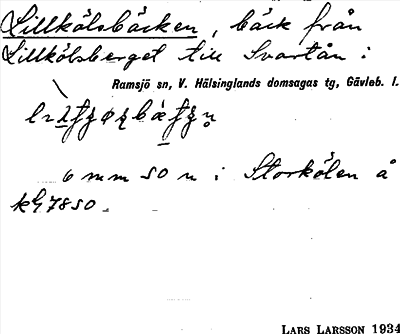 Lillkölsbäcken, bäck från
Lillkölsberget till Svartån i
Ramsjö sn, V. Hälsinglands domsagas tg, Gävleb. l.
6 mm SO n i Storkölen å
kG 7850.
LARS LARSSON 1934